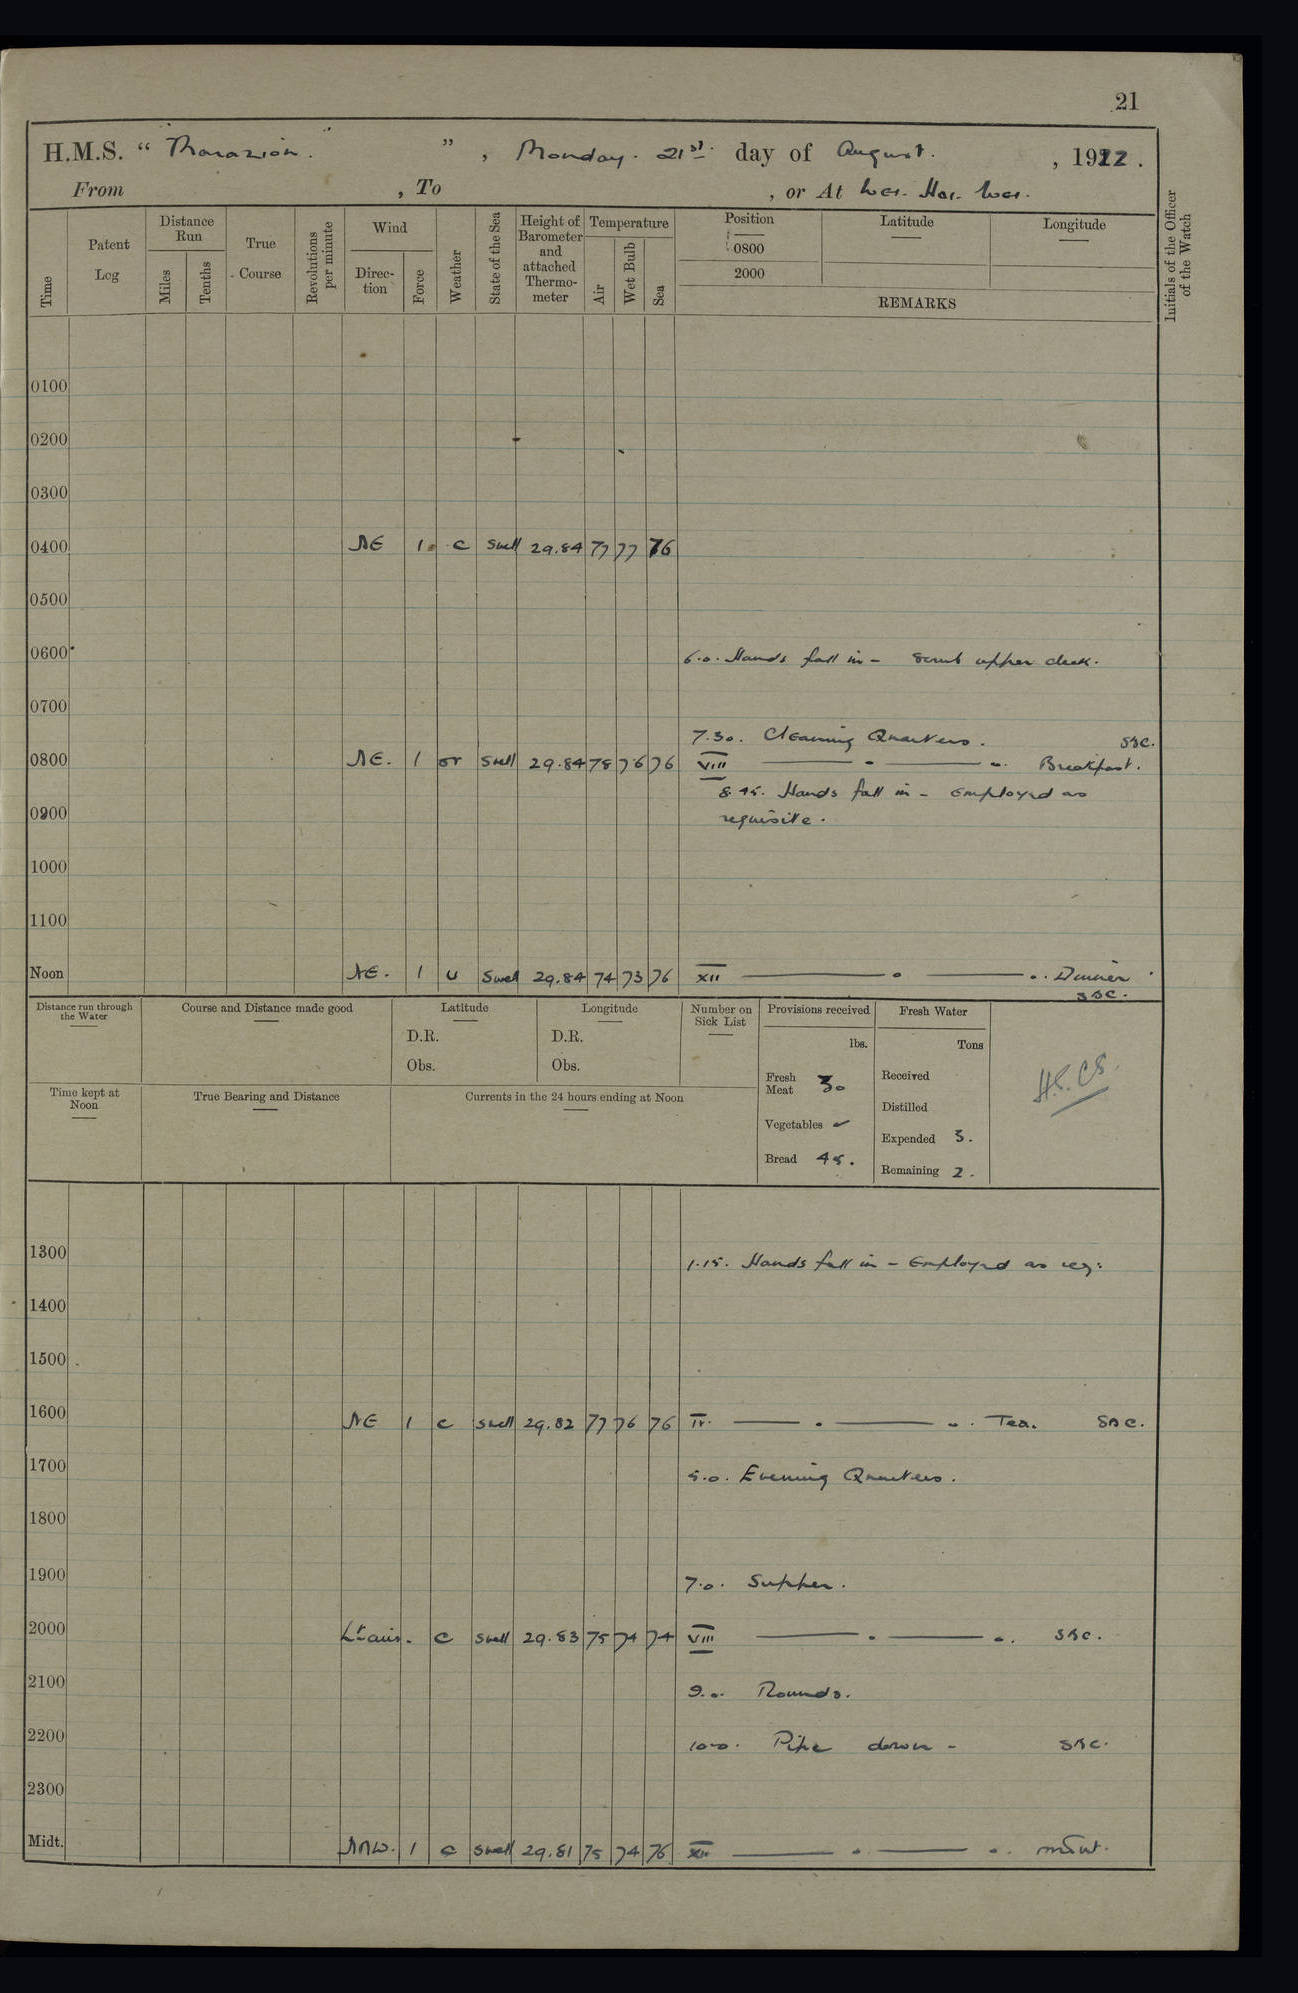 21
H.M.S. " Marazion. " , Monday. 21st. day of August. , 1922.
From , To , or At Wei. Hai. Wei.
Time
Patent Log
Distance Run
Miles
Tenths
True Course
Revolutions per minute
Wind
Direction
Force
Weather
State of the Sea
Height of Barometer and attached Thermometer
Temperature
Air
Wet Bulb
Sea
Position Latitude Longitude
0800
2000
REMARKS
Initials of the Officer of the Watch
0100
0200
0300
0400 NE 1 c Swell 29.84 77 77 76
0500
0600 6.0. Hands fall in – Scrub upper deck.
0700
7.30. Cleaning Quarters. SBC.
0800 NE. 1 or Swell 29.84 78 76 76 VIII Breakfast.
8.45. Hands fall in – Employed as
0900 requisite.
1000
1100
Noon NE. 1 u Swell 29.84 74 73 76 XII Dinner
SBC.
Distance run through the Water
Course and Distance made good
Latitude
D.R.
Obs.
Longitude
D.R.
Obs.
Number on Sick List
Provisions received
lbs.
Fresh Meat 30
Vegetables ✓
Bread 45.
Fresh Water
Tons
Received
Distilled
Expended 3.
Remaining 2.
Time kept at Noon
True Bearing and Distance
Currents in the 24 hours ending at Noon
1300 1.15. Hands fall in – Employed as req:
1400
1500
1600 NE 1 c Swell 29.82 77 76 76 IV. Tea. SBC.
1700 5.0. Evening Quarters.
1800
1900 7.0. Supper.
2000 Lt airs. c Swell 29.83 75 74 74 VIII SBC.
2100 9.0. Rounds.
2200 10.0. Pipe down – SBC.
2300
Midt. NNW. 1 c Swell 29.81 75 74 76 XII